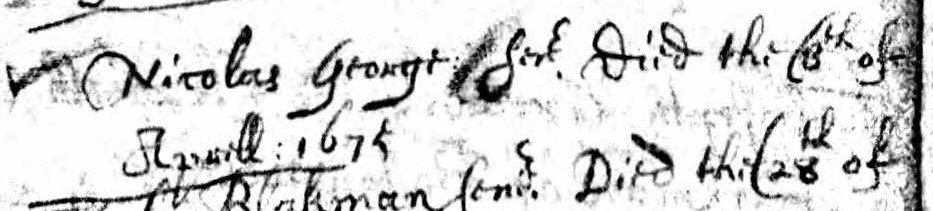 Nicolas George senr. Died the (8th of
Aprill: 1675
Blakman senr. Died the (28th of